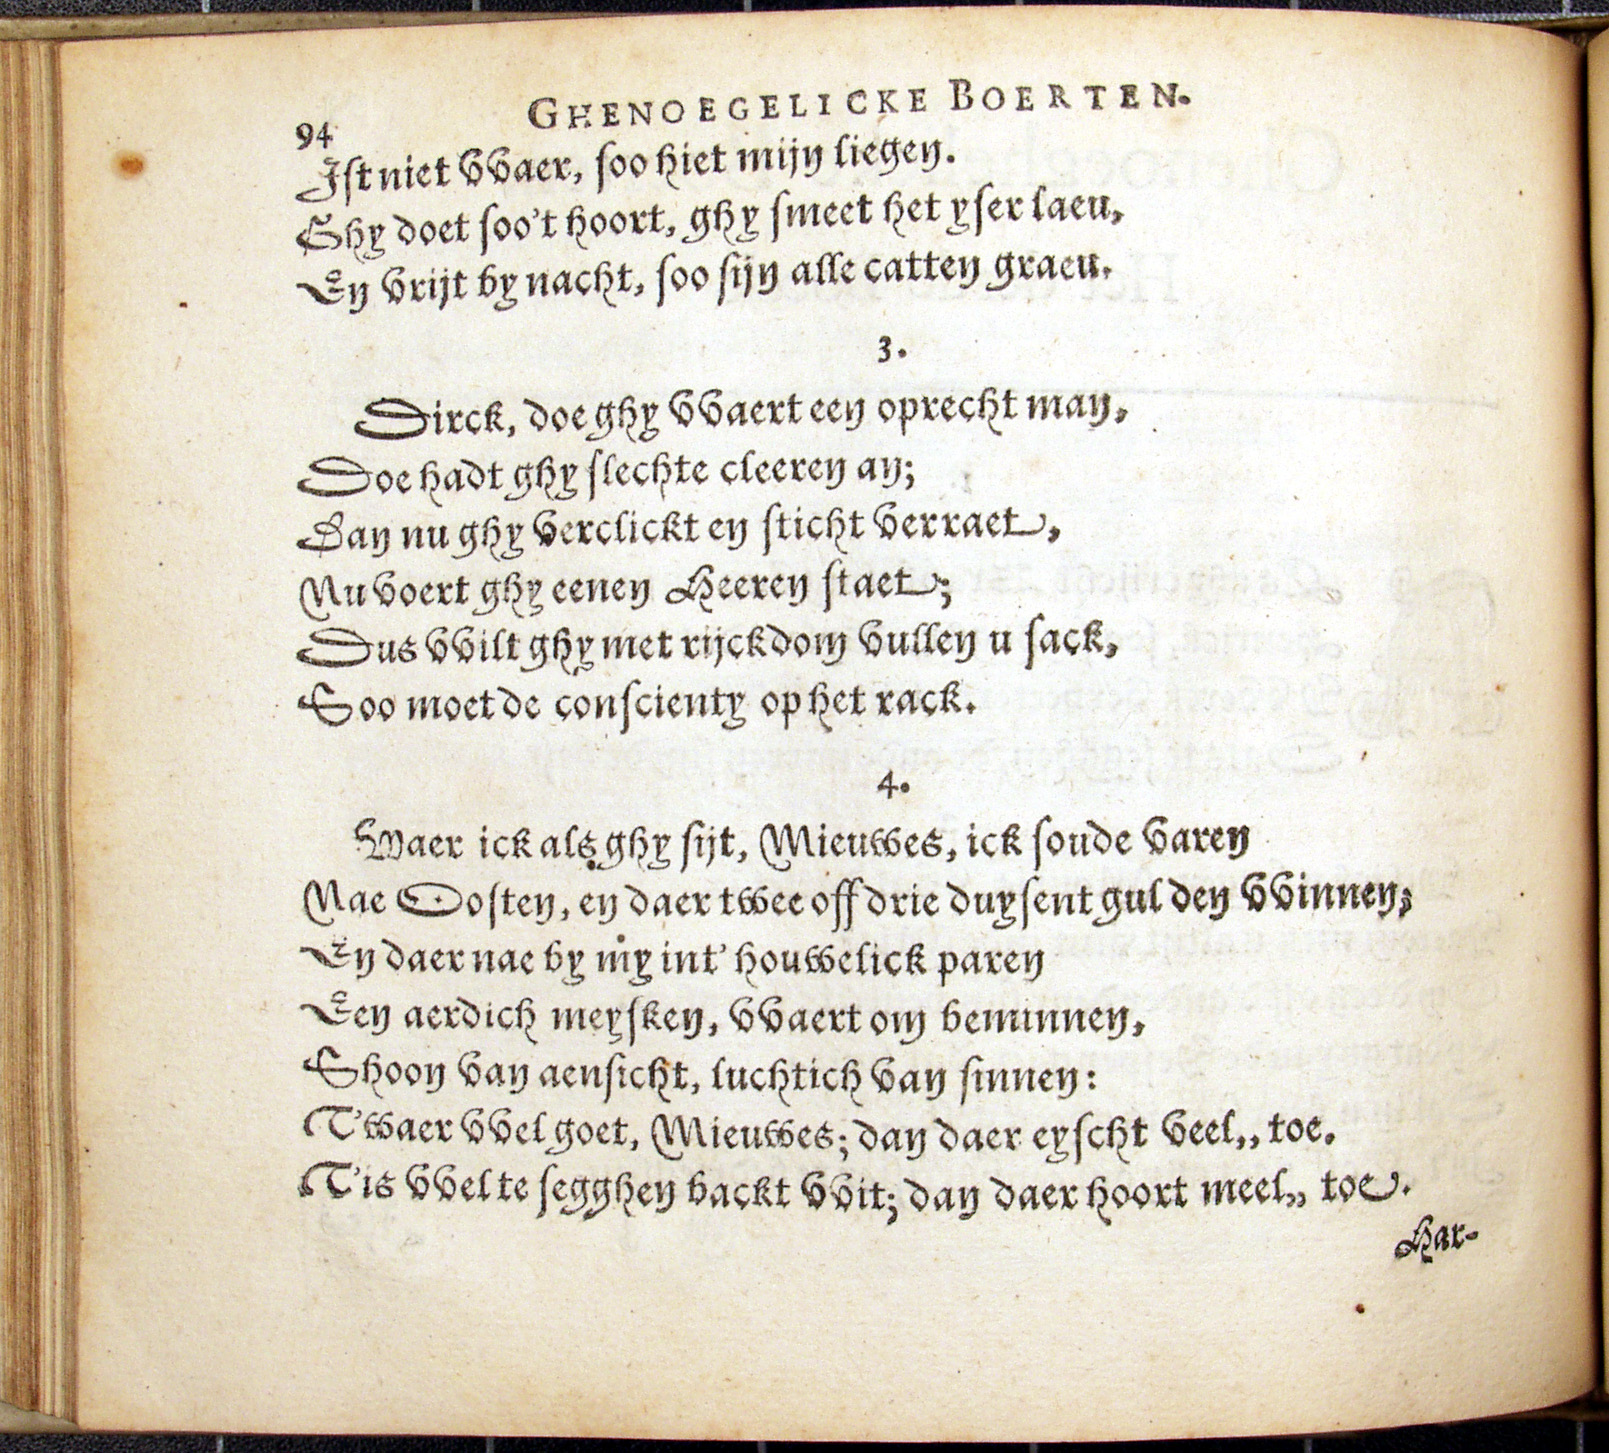 94 GHENOEGELICKE BOERTEN.
Ist niet vvaer, soo hiet mijn liegen.
Ghy doet soo't hoort, ghy smeet het yser laeu,
En vrijt by nacht, soo sijn alle catten graeu.
3.
Dirck, doe ghy vvaert een oprecht man,
Doe hadt ghy slechte cleeren an;
Dan nu ghy verclickt en sticht verraet,
Nu voert ghy eenen Heeren staet;
Dus vvilt ghy met rijckdom vullen u sack,
Soo moet de conscienty op het rack.
4.
Waer ick als ghy sijt, Mieuwes, ick soude varen
Nae Oosten, en daer twee off drie duysent gulden vvinnen;
En daer nae by my int' houwelick paren
Een aerdich meysken, vvaert om beminnen,
Shoon van aensicht, luchtich van sinnen:
T'waer vvel goet, Mieuwes; dan daer eyscht veel,, toe.
T'is vvel te segghen backt vvit; dan daer hoort meel,, toe.
Har-